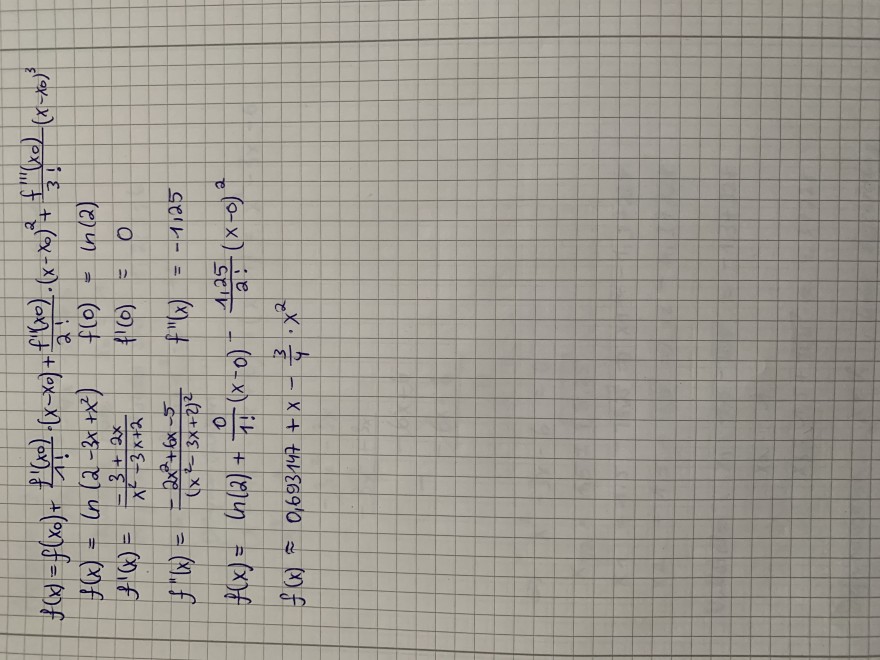 f(x) = f(x0) + f'(x0)/1! · (x-x0) + f'(x0)/2! · (x-x0)² + f'''(x0)/3! (x-x0)³
f(x) = ln (2-3x+x²) f(0) = ln(2)
f'(x) = -3+2x/x²-3x+2 f'(0) = 0
f''(x) = - 2x²+6x-5/(x²-3x+2)² f''(x) = -1,25
f(x) = ln(2) + 0/1! (x-0) - 1,25/2! (x-0)²
f(x) ≈ 0,693147 + x - 3/4 · x²